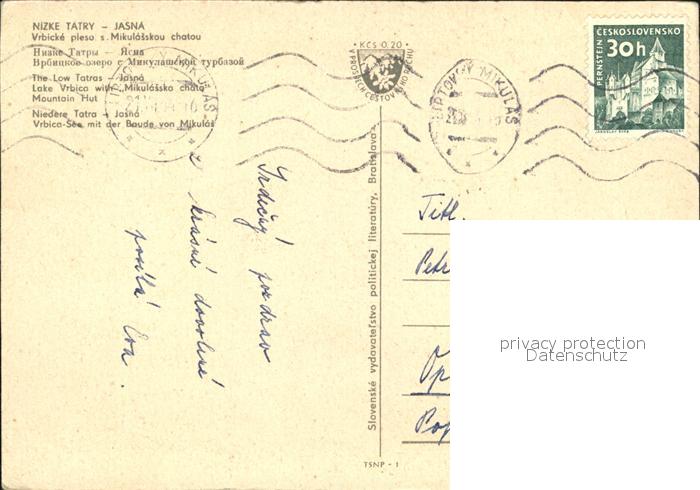 NÍZKE TATRY – JASNÁ
Vrbické pleso s Mikulášskou chatou
Низке Татры – Ясна
Врбицкое озеро с Микулашской турбазой
The Low Tatras – Jasná
Lake Vrbica with „Mikulášska chata"
Mountain Hut
Niedere Tatra – Jasná
Vrbica-See mit der Baude von Mikuláš
KČS 0,20
LIPTOVSKÝ MIKULÁŠ
ČESKOSLOVENSKO
30h
PERNŠTEJN
Srdečný pozdrav
z krásné dovolené
posílá Eva.
Slovenské vydavateľstvo politickej literatúry, Bratislava
TSNP - 1
Titl.
Petr
Op
Pop
privacy protection
Datenschutz